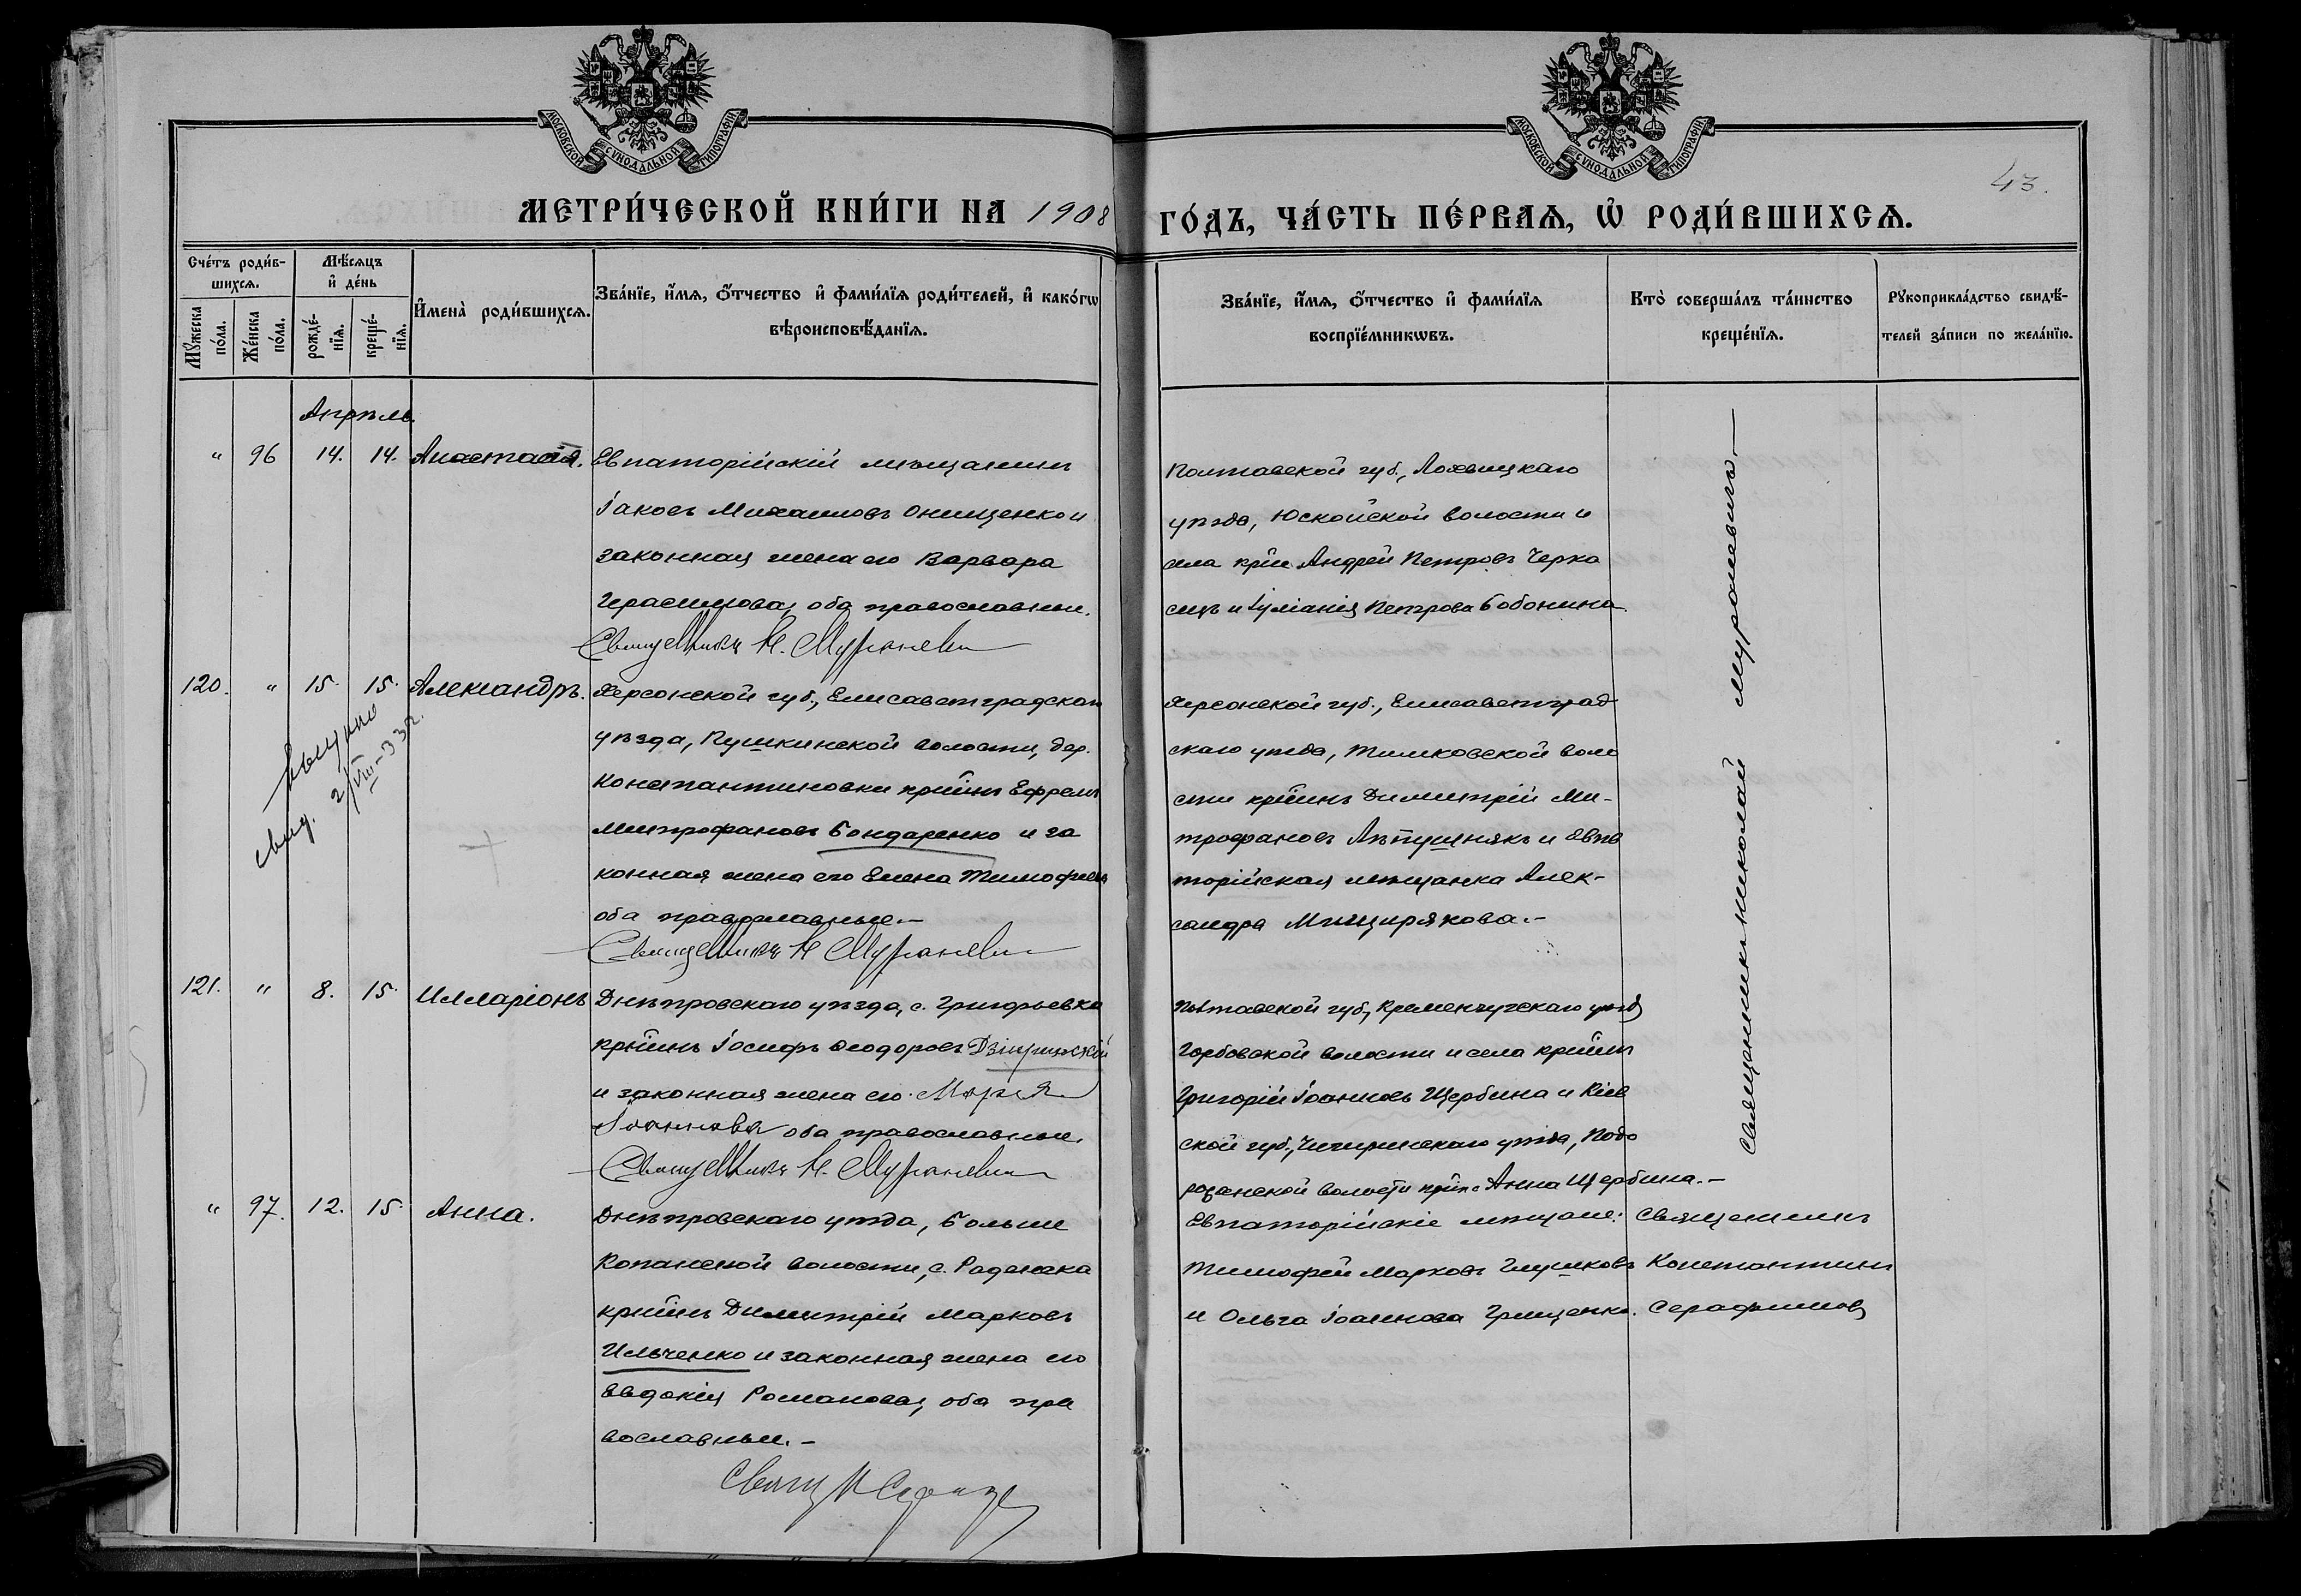 МОСКОВСКОЙ СѴНОДАЛЬНОЙ ТИПОГРАФІИ
МОСКОВСКОЙ СѴНОДАЛЬНОЙ ТИПОГРАФІИ
43.
МЕТРИ́ЧЕСКОЙ КНИ́ГИ НА 1908
ГО́ДЪ, ЧА́СТЬ ПЕ́РВАѦ, Ѡ҆ РОДИ́ВШИХСѦ.
Сче́тъ роди́в-
шихсѧ.
Мѣ́сѧцъ
и҆ де́нь
Мꙋ́жеска по́ла.
Же́нска по́ла.
рожде́-
нїѧ.
креще́-
нїѧ.
И҆мена̀ роди́вшихсѧ.
Зва́нїе, и҆́мѧ, о҆́тчество и҆ фами́лїѧ роди́телей, и҆ како́гѡ
вѣроисповѣ́данїѧ.
Зва́нїе, и҆́мѧ, о҆́тчество и҆ фами́лїѧ
воспрїе́мникѡвъ.
Кто̀ соверша́лъ та́инство
креще́нїѧ.
Рꙋкоприкла́дство свидѣ́-
телей за́писи по жела́нїю.
Апрѣль
" 96 14. 14. Анастасія.
Евпаторійскій мѣщанинъ
Іаковъ Михаиловъ Онищенко и
законная жена его Варвара
Герасимова, оба православные.
Священникъ Н. Мураневич
Полтавской губ., Лохвицкаго
уѣзда, волости и
села крн Андрей Петровъ Черка
синъ и Іуліанія Петрова Бобонина.
120. " 15. 15. Александръ.
Херсонской губ., Елисаветградскаго
уѣзда, Пушкинской волости, дер.
Константиновки крнинъ Ефремъ
Митрофановъ Бондаренко и за
конная жена его Елена Тимофеева
оба православные.-
Священникъ Н Мураневич
выдано
свид. 2/VIII-33г.
Херсонской губ., Елисаветград
скаго уѣзда, Тишковской воло
сти крнинъ Димитрій Ми-
трофановъ Лѣпушнякъ и Евпа
торійская мѣщанка Алек-
сандра Мищирякова.-
121. " 8. 15. Илларіонъ
Днѣпровскаго уѣзда, с. Григорьевка
крнинъ Іосифъ Ѳеодоровъ
и законная жена его Марія
Іоаннова оба православные.
Священникъ Н. Мураневич
Полтавской губ., Кременчугскаго уѣзд
Горбовской волости и села крнинъ
Григорій Іоанновъ Щербина и Кіев
ской губ., Чигиринскаго уѣзда, Подо
рожанской волости крнка Анна Щербина.-
Священникъ Николай Мураневичъ
" 97. 12. 15. Анна.
Днѣпровскаго уѣзда, Больше
Копанской волости, с. Раденска
крнинъ Димитрій Марковъ
Ильченко и законная жена его
Евдокія Романова, оба пра
вославные.-
Евпаторійскіе мѣщане:
Тимофей Марковъ Глушковъ
и Ольга Іоаннова Грищенко.
Священникъ
Константинъ
Серафимовъ